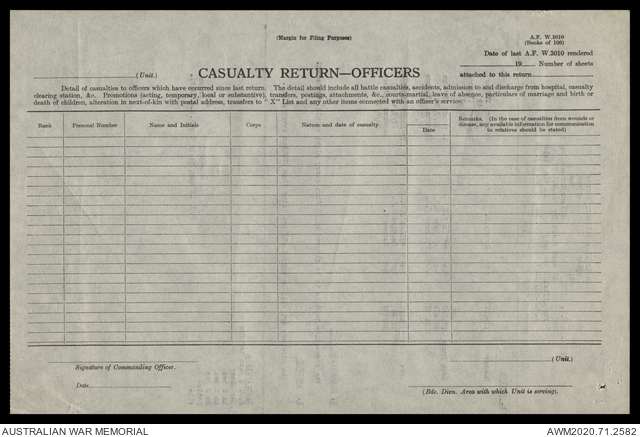 (Margin for Filing Purposes)
A.F. W.3010
(Books of 100)
Date of last A.F. W.3010 rendered
19 Number of sheets
attached to this return
(Unit.)
CASUALTY RETURN—OFFICERS
Detail of casualties to officers which have occurred since last return. The detail should include all battle casualties, accidents, admission to and discharge from hospital, casualty
clearing station, &c. Promotions (acting, temporary, local or substantive), transfers, postings, attachments, &c., courts-martial, leave of absence, particulars of marriage and birth or
death of children, alteration in next-of-kin with postal address, transfers to "X" List and any other items connected with an officer's service.
Rank
Personal Number
Name and Initials
Corps
Nature and date of casualty
Date
Remarks. (In the case of casualties from wounds or
disease, any available information for communication
to relatives should be stated)
Signature of Commanding Officer.
Date
(Unit.)
(Bde. Divn. Area with which Unit is serving).
AUSTRALIAN WAR MEMORIAL
AWM2020.71.2582